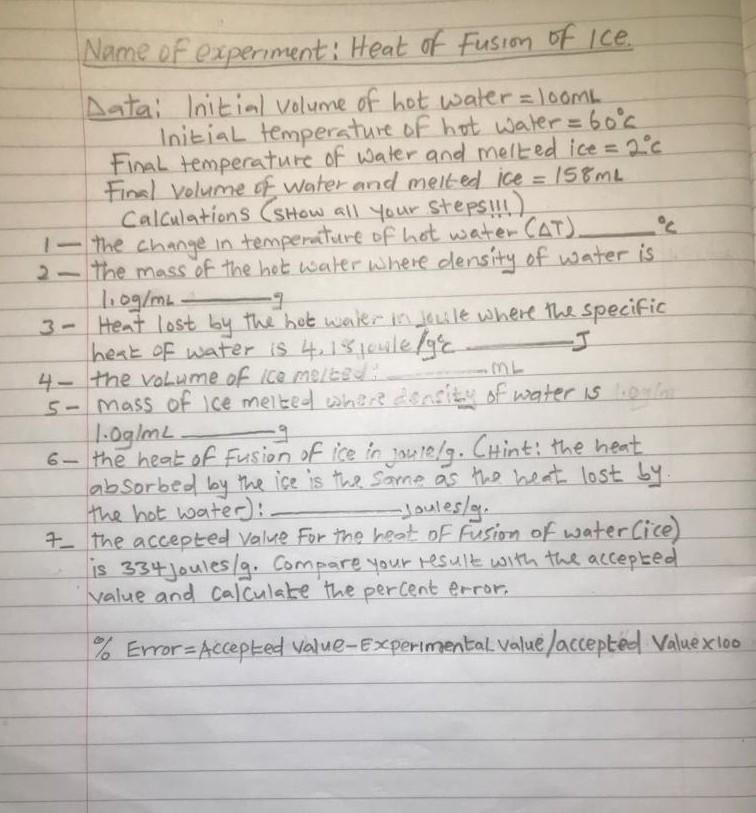 Name of experiment: Heat of Fusion of Ice.
Data: Initial volume of hot water = 100mL
Initial temperature of hot water = 60°c
Final temperature of water and melted ice = 2°c
Final volume of water and melted ice = 158mL
Calculations (SHow all your steps!!!)
1 - the change in temperature of hot water (ΔT) ______ °c
2 - the mass of the hot water where density of water is
1.0g/mL ______ g
3 - Heat lost by the hot water in joule where the specific
heat of water is 4.18 joule/g°c ______ J
4 - the volume of ice melted: ______ mL
5 - mass of ice melted where density of water is
1.0g/mL ______ g
6 - the heat of fusion of ice in joule/g. (Hint: the heat
absorbed by the ice is the same as the heat lost by
the hot water): ______ Joules/g.
7 - the accepted value For the heat of fusion of water (ice)
is 334 joules/g. Compare your result with the accepted
value and calculate the percent error.
% Error = Accepted value - Experimental value / accepted Value x 100